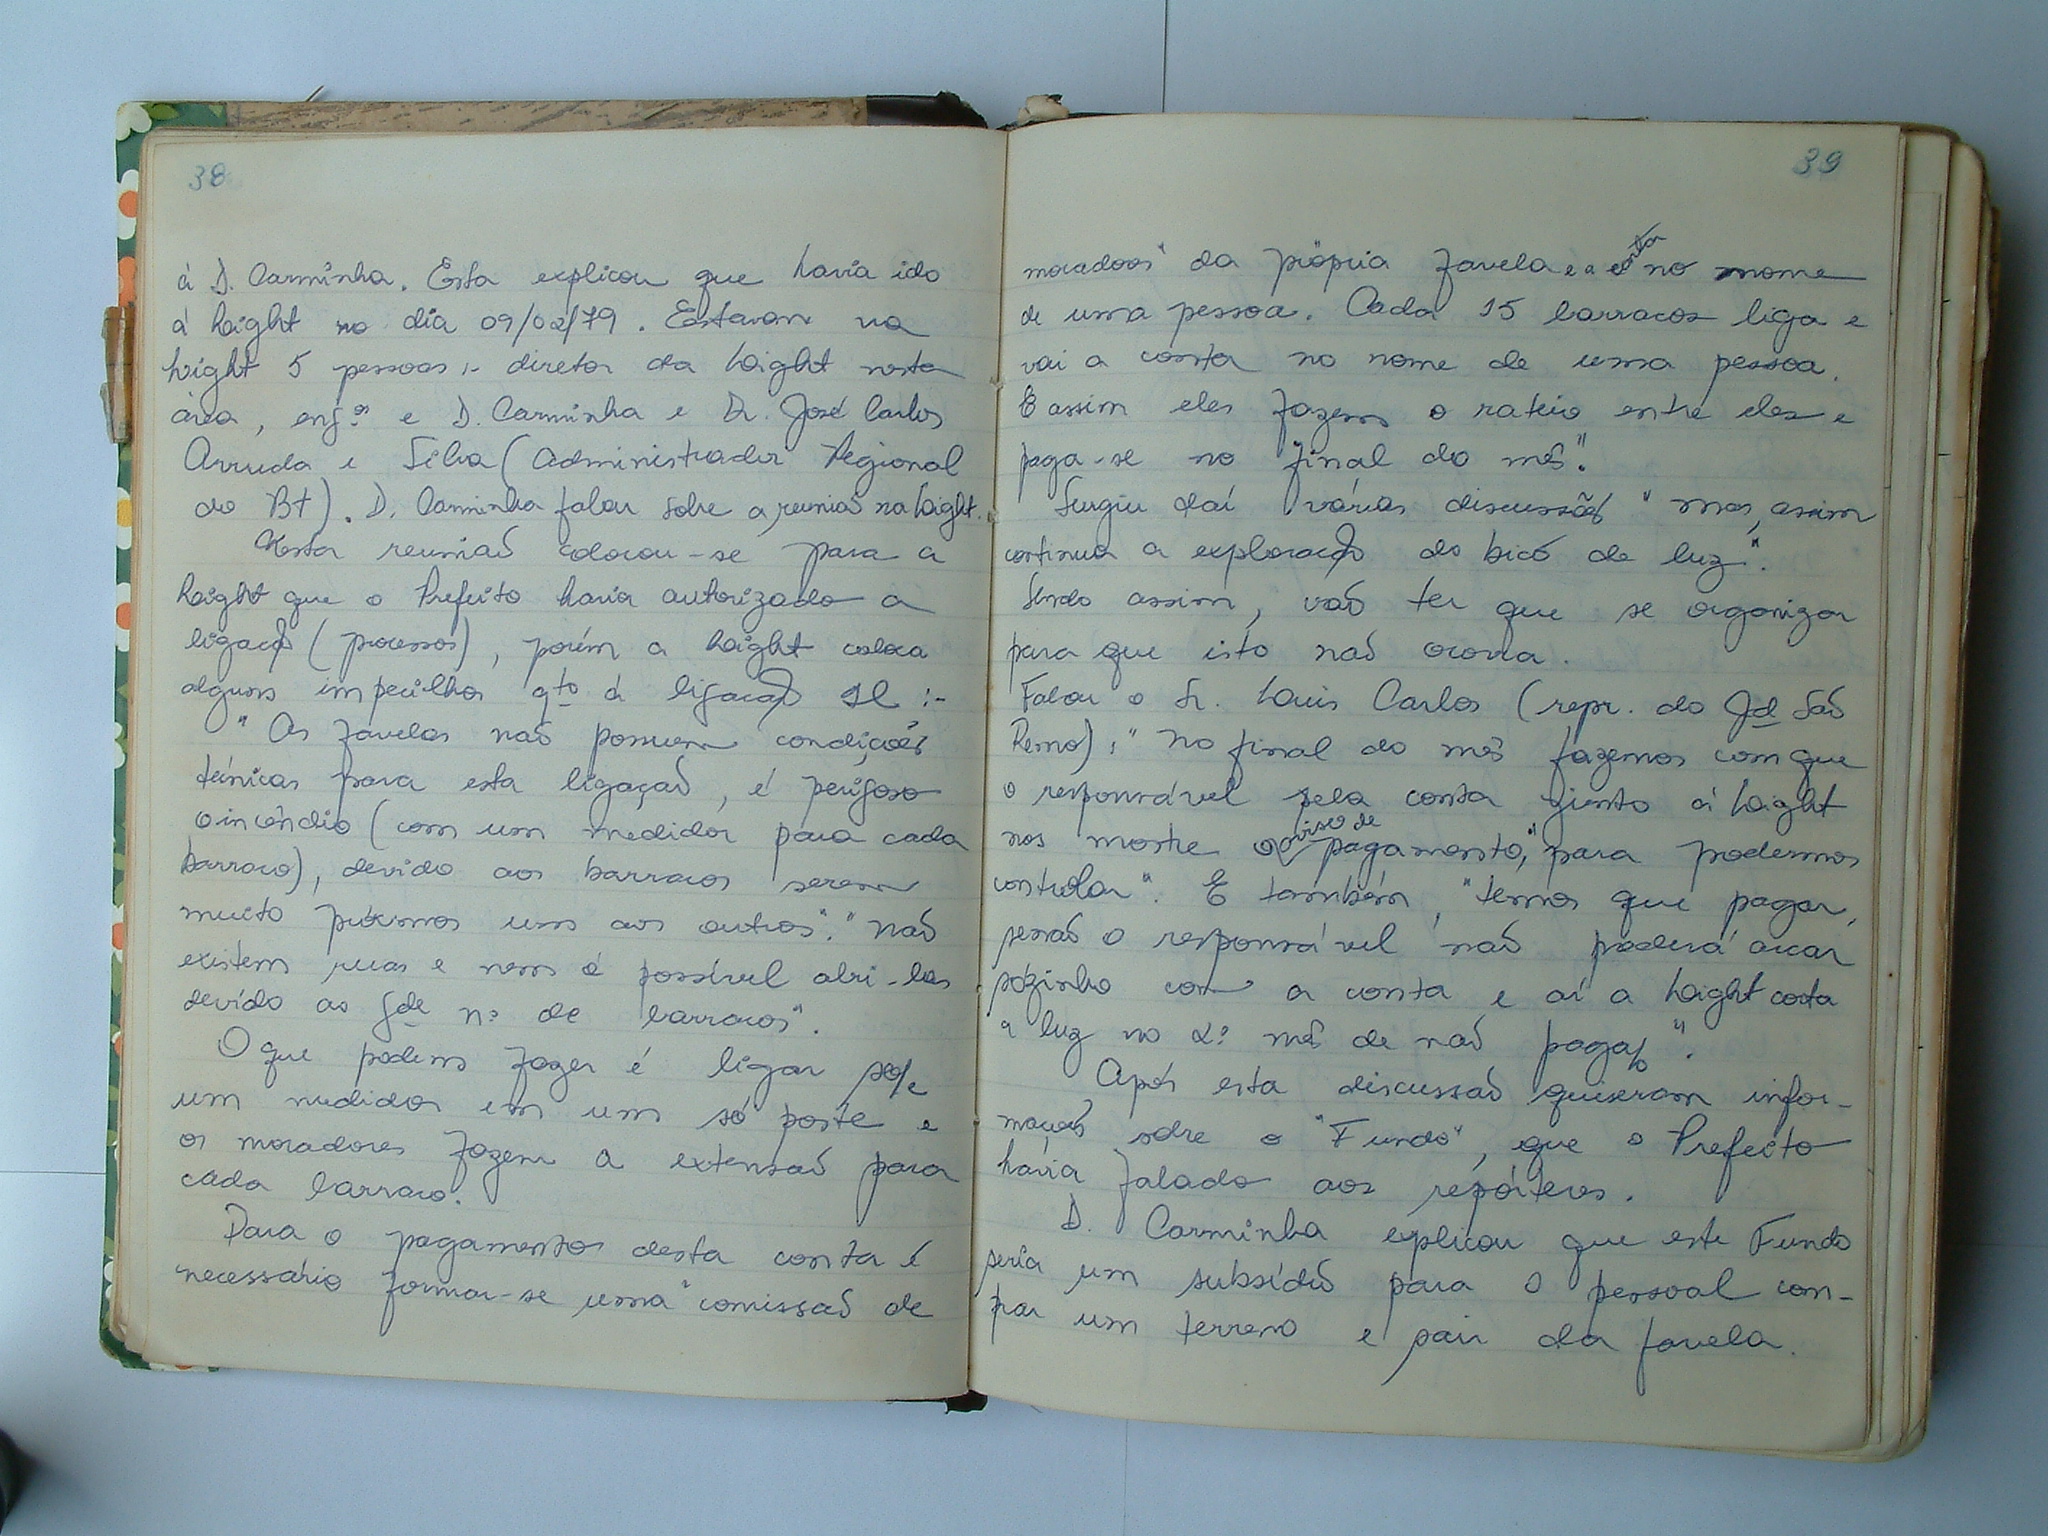 38
à D. Carminha. Esta explicou que havia ido
à Light no dia 09/02/79. Estavam na
Light 5 pessoas:- diretor da Light nesta
área, engºs e D. Carminha e Dr. José Carlos
Arruda e Silva (Administrador Regional
do Bt). D. Carminha falou sobre a reunião na Light.
Nesta reunião colocou-se para a
Light que o Prefeito havia autorizado a
ligação (processos), porém a Light coloca
alguns impecilhos qto à ligação :-
"As favelas não possuem condições
técnicas para esta ligação, é perigoso
o incêndio (com um medidor para cada
barraco), devido aos barracos serem
muito próximos uns aos outros". "Não
existem ruas e nem é possível abri-las
devido ao gde nº de barracos".
O que podem fazer é ligar
um medidor em um só poste e
os moradores fazem a extensão para
cada barraco.
Para o pagamento desta conta é
necessário formar-se uma "comissão de
39
moradores" da própria favela e a conta no nome
de uma pessoa. Cada 15 barracos liga e
vai a conta no nome de uma pessoa.
E assim eles fazem o rateio entre eles e
paga-se no final do mês".
Surgiu daí várias discussões "mas, assim
continua a exploração do bico de luz".
Sendo assim, vão ter que se organizar
para que isto não ocorra.
Falou o Sr. Luis Carlos (repr. do Jd São
Remo): "No final do mês fazemos com que
o responsável pela conta junto à Light
nos mostre o aviso de pagamento," para podermos
controlar". E também, "temos que pagar,
senão o responsável não poderá arcar
sózinho com a conta e aí a Light corta
a luz no 2º mês de não pagar".
Após esta discussão quiseram infor-
mações sobre o "Fundo", que o Prefeito
havia falado aos repórteres.
D. Carminha explicou que este Fundo
seria um subsídio para o pessoal com-
prar um terreno e sair da favela.